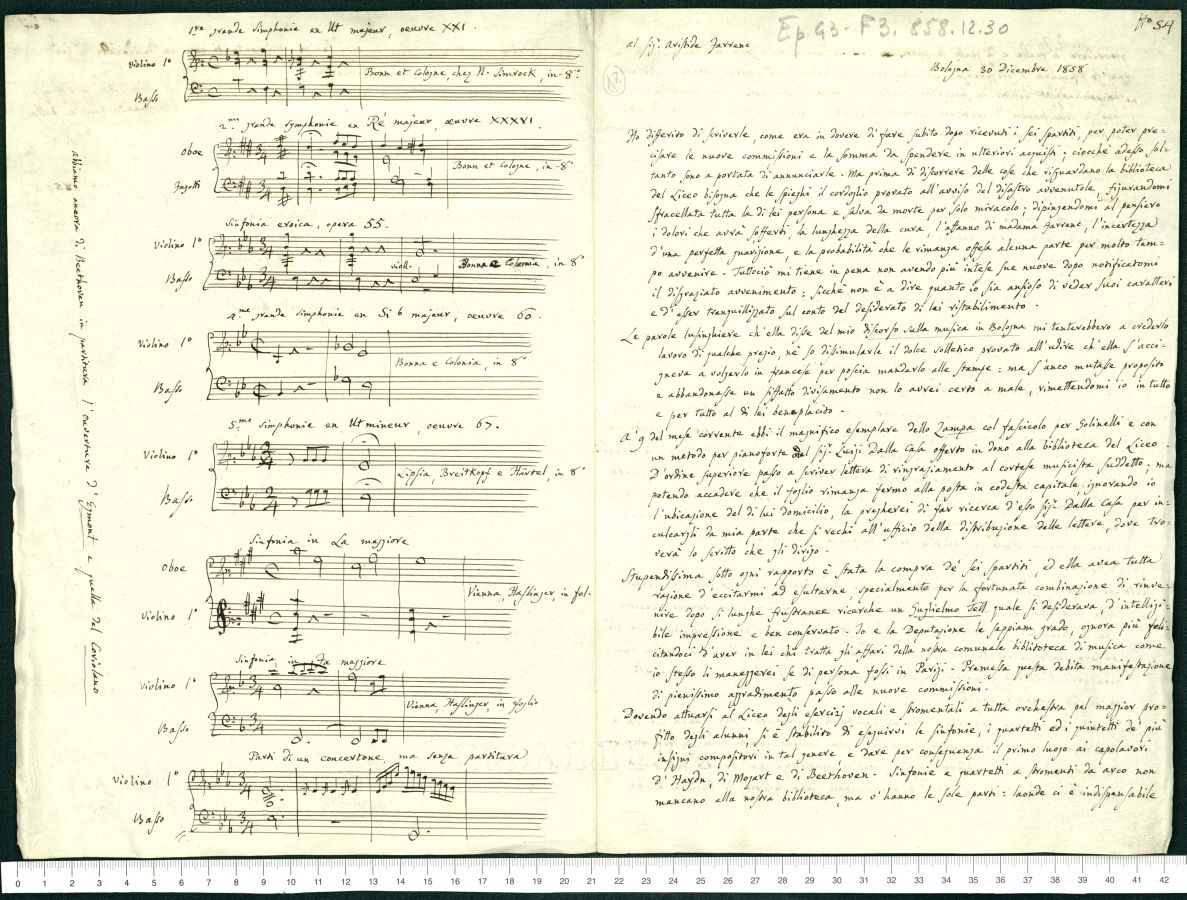 1re grande Simphonie en Ut majeur, oeuvre XXI.
Violino 1o
Bonn et Cologne, chez N. Simrock, in-8o
Basso
2me grande Symphonie en Ré majeur, œuvre XXXVI.
Oboe
Bonn et Cologne, in-8o
Fagotti
Sinfonia eroica, opera 55.
Violino 1o
viol.
Bonna e Colonia, in 8o
Basso
4me grande Simphonie en Si b majeur, oeuvre 60.
Violino 1o
Bonna e Colonia, in 8o
Basso
5me Simphonie en Ut mineur, oeuvre 67.
Violino 1o
Lipsia, Breitkopf e Härtel, in 8o
Basso
Sinfonia in La maggiore
Oboe
Vienna, Haslinger, in fol.
Violino 1o
Sinfonia in Fa maggiore
Violino 1o
Vienna, Haslinger, in foglio
Basso
Parti di un concertone, ma senza partitura
Violino 1o
Basso
abbiamo ancora di Beethoven in partitura l'ouvertura d'Egmont e quella del Coriolano
No 54
Ep. G3- F3. 858.12.30
al Sigr. Aristide Farrenc
(12)
Bologna 30 Dicembre 1858
Ho differito di scriverle, come era in dovere di fare subito dopo ricevuti i sei spartiti, per poter pre=
cisare le nuove commissioni e la somma da spendere in ulteriori acquisti; ciocchè adesso sol=
tanto sono a portata di annunciarle. Ma prima di discorrere delle cose che risguardano la biblioteca
del Liceo bisogna che le spieghi il cordoglio provato all'avviso del disastro avvenutole, figurandomi
sfracellata tutta la di lei persona e salva da morte per solo miracolo; dipingendomi al pensiero
i dolori che avrà sofferti, la lunghezza della cura, l'affanno di madama Farrenc, l'incertezza
d'una perfetta guarigione, e la probabilità che le rimanga offesa alcuna parte per molto tem=
po avvenire. Tuttociò mi tiene in pena non avendo più intese sue nuove dopo notificatomi
il disgraziato avvenimento: sicchè non è a dire quanto io sia ansioso di veder suoi caratteri
e d'esser tranquillizzato sul conto del desiderato di lei ristabilimento.
Le parole lusinghiere ch'ella disse del mio discorso sulla musica in Bologna mi tenterebbero a crederlo
lavoro di qualche pregio, nè so dissimularle il dolce solletico provato all'udire ch'ella s'acci=
gneva a volgerlo in francese per poscia mandarlo alle stampe: ma s'anco mutasse proposito
e abbandonasse un siffatto divisamento non lo avrei certo a male, rimettendomi io in tutto
e per tutto al di lei beneplacido.
A' 9 del mese corrente ebbi il magnifico esemplare dello Zampa col fascicolo per Golinelli e con
un metodo per pianoforte dal sigr. Luigi Dalla Casa offerto in dono alla biblioteca del Liceo.
D'ordine superiore passo a scriver lettera di ringraziamento al cortese musicista suddetto: ma
potendo accadere che il foglio rimanga fermo alla posta in codesta capitale ignorando io
l'ubicazione del di lui domicilio, la pregherei di far ricerca d'esso sigr. Dalla Casa per in=
culcargli da mia parte che si rechi all'ufficio della distribuzione delle lettere, dove tro=
verà lo scritto che gli dirigo.
Stupendissima sotto ogni rapporto è stata la compra de' sei spartiti, ed ella avea tutta
ragione d'eccitarmi ad esultarne, specialmente per la fortunata combinazione di rinve=
nire dopo sì lunghe frustranee ricerche un Guglielmo Tell quale si desiderava, d'intelligi=
bile impressione e ben conservato. Io e la Deputazione le sappiam grado, ognora più feli=
citandoci d'aver in lei chi tratta gli affari della nostra comunale biblioteca di musica come
io stesso li maneggerei se di persona fossi in Parigi. Premessa questa debita manifestazione
di pienissimo aggradimento passo alle nuove commissioni.
Dovendo attuarsi al Liceo degli esercizj vocali e stromentali a tutta orchestra pel maggior pro=
fitto degli alunni, si è stabilito di eseguirvi le sinfonie, i quartetti ed i quintetti de' più
insigni compositori in tal genere e dare per conseguenza il primo luogo ai capolavori
d'Haydn, di Mozart e di Beethoven. Sinfonie e quartetti a stromenti da arco non
mancano alla nostra biblioteca, ma v'hanno le sole parti: laonde ci è indispensabile